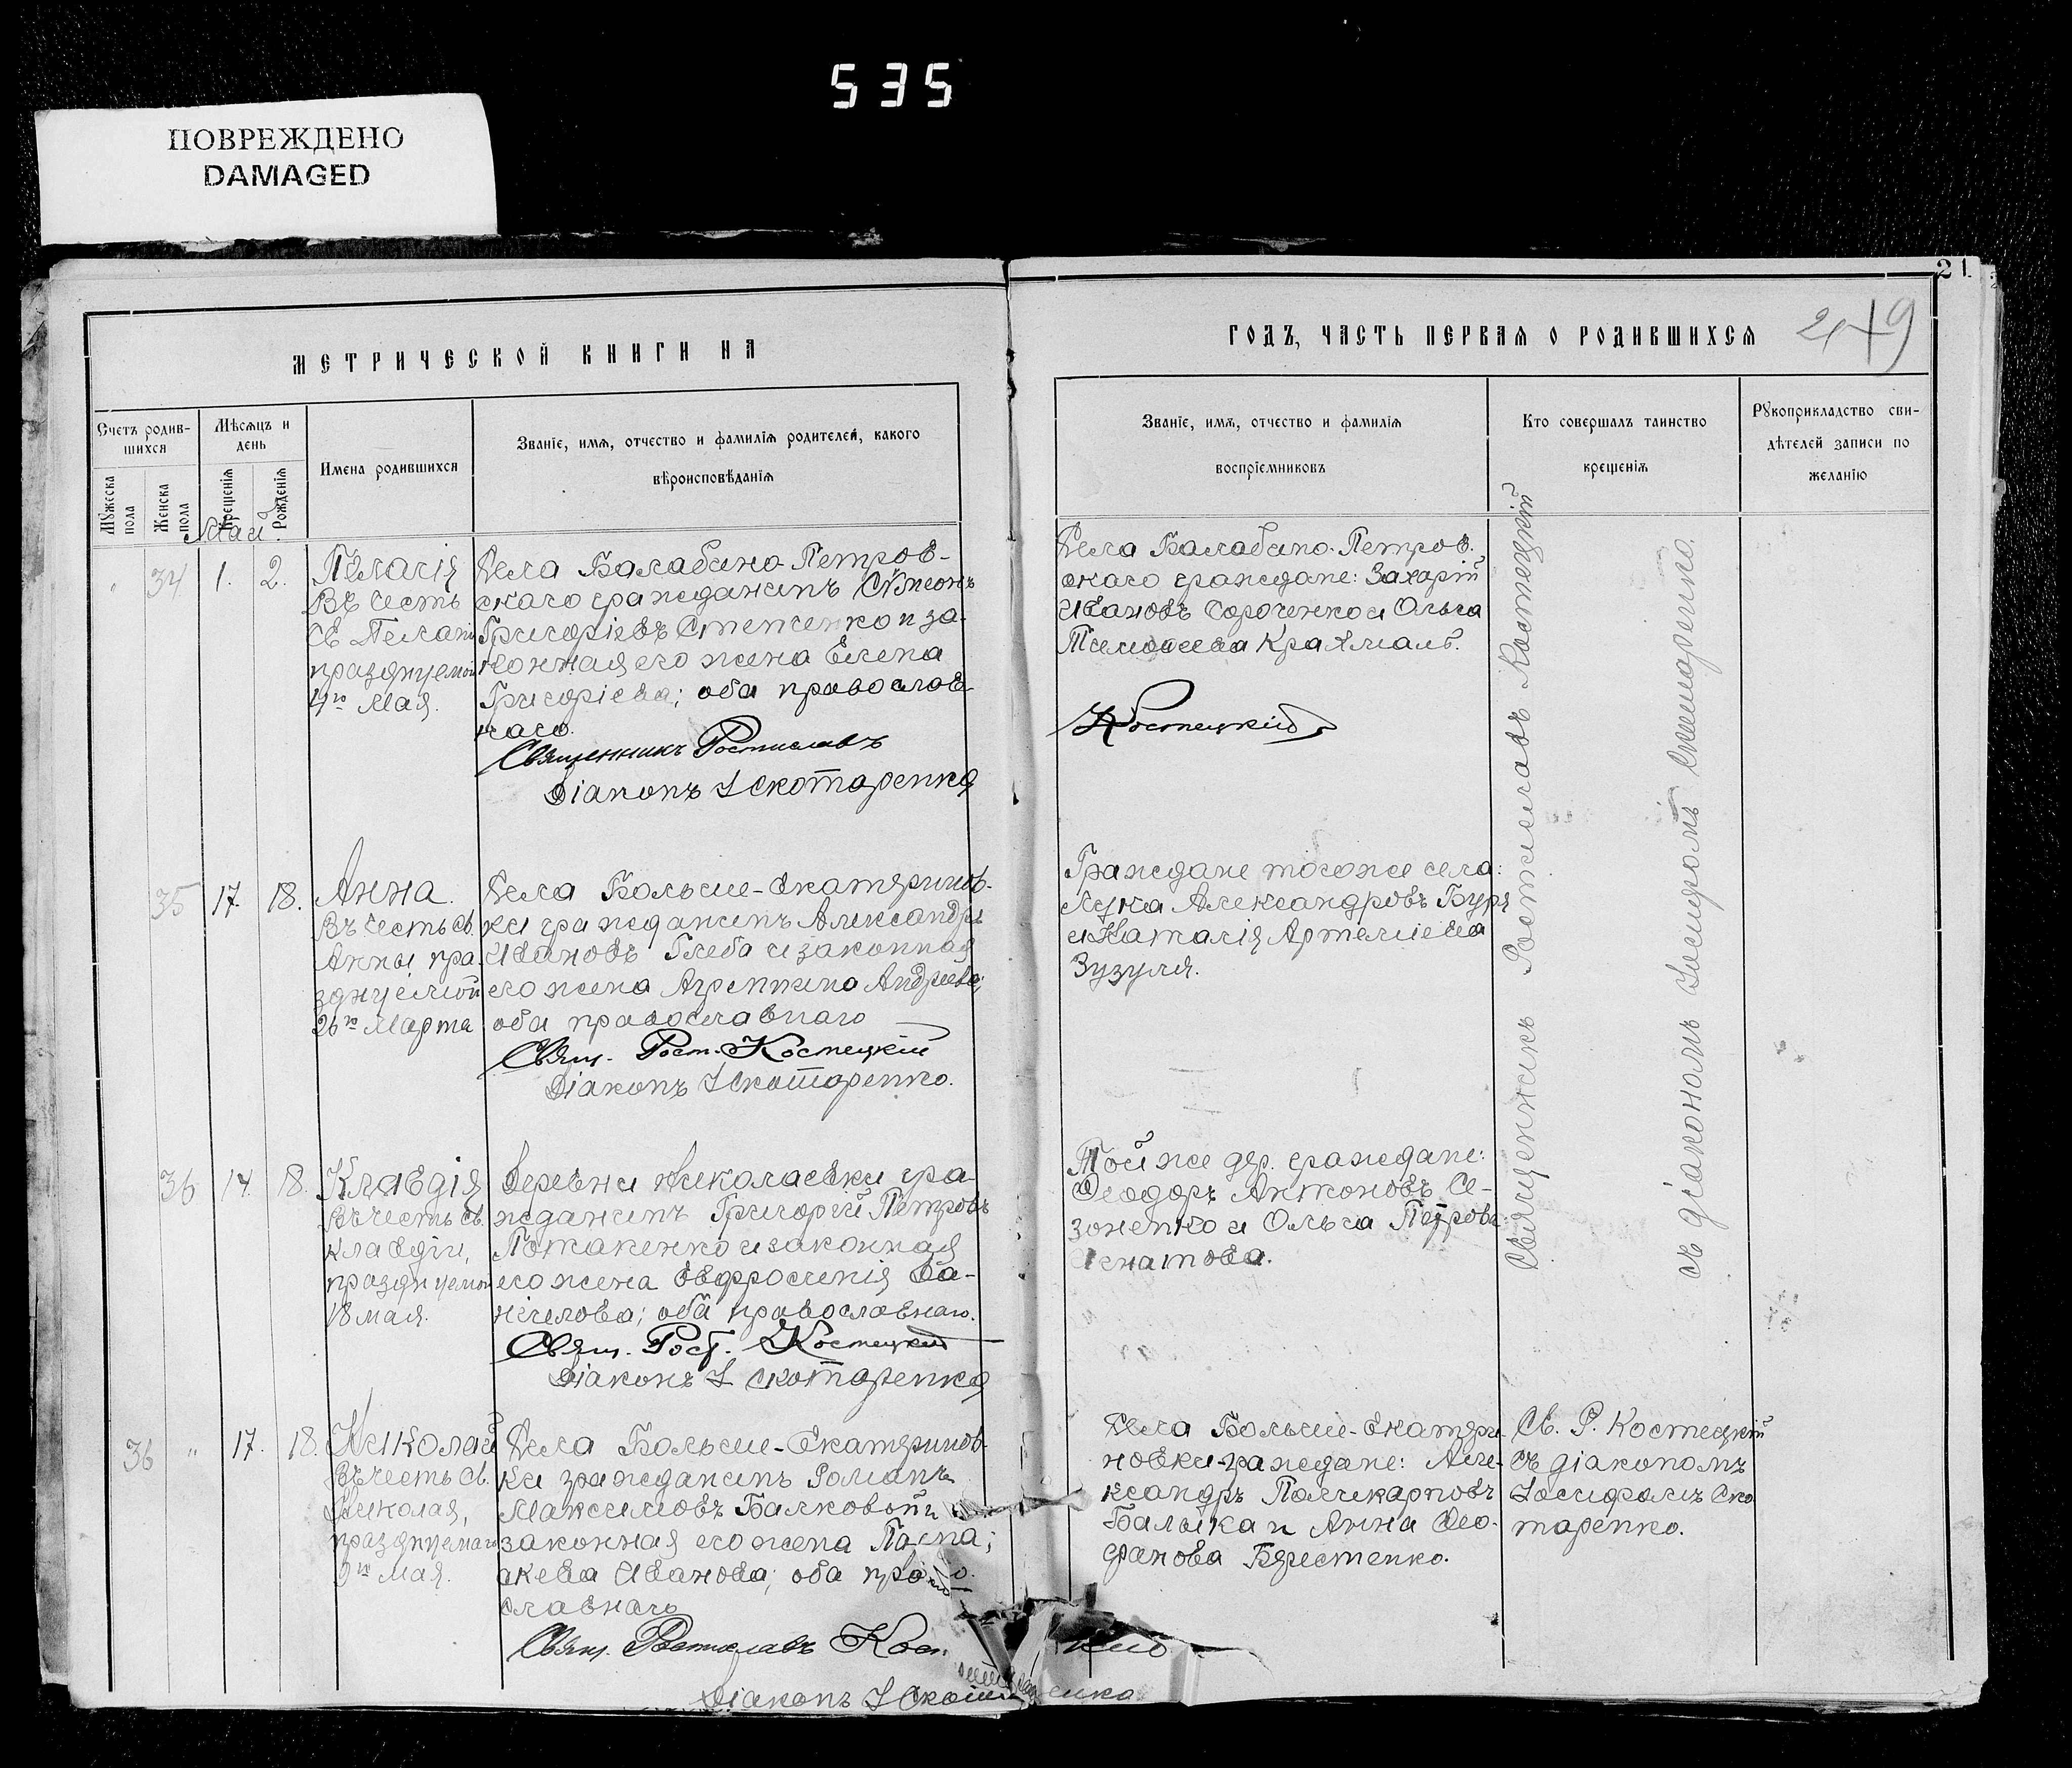 535
ПОВРЕЖДЕНО
DAMAGED
21.
249
МЕТРИЧЕСКОЙ КНИГИ НА
ГОДЪ, ЧАСТЬ ПЕРВАЯ О РОДИВШИХСЯ
Счетъ родив-
шихся
Мужеска
пола
Женска
пола
Мѣсяцъ и
день
Крещенія
Рожденія
Имена родившихся
Званіе, имя, отчество и фамилія родителей, какого
вѣроисповѣданія
Званіе, имя, отчество и фамилія
воспріемниковъ
Кто совершалъ таинство
крещенія
Рукоприкладство сви-
дѣтелей записи по
желанію
Май.
34 1. 2.
Пелагія
Въ честь
св. Пелагіи
празднуемой
4го Мая.
Села Балабино-Петров-
скаго гражданинъ Сѵмеонъ
Григоріевъ Степченко и за-
конная его жена Елена
Григоріева; оба православ-
наго.
Священникъ Ростиславъ
Діаконъ І Скотаренко
Села Балабино-Петров-
скаго граждане: Захарій
Ивановъ Сороченко и Ольга
Тимофеева Крахмаль.
Костецкій
Священникъ Ростиславъ Костецкій
съ діакономъ Іосифомъ Скотаренко.
35 17. 18.
Анна.
Въ честь св.
Анны пра-
зднуемой
26го Марта
Села Больше-Екатеринов-
ки гражданинъ Александръ
Ивановъ Глеба и законная
его жена Агрипина Андреева;
оба православнаго
Свящ. Рост. Костецкій
Діаконъ І Скотаренко.
Граждане тогоже села:
Лука Александровъ Буря
и Наталія Артеміева
Зузуля.
36 14. 18.
Клавдія
Въ честь св.
Клавдіи,
празднуемой
18 мая.
Деревни Николаевки гра-
жданинъ Григорій Петровъ
Потакенко и законная
его жена Евфросинія Да-
ніилова; оба православнаго.
Свящ. Рост. Костецкій
Діаконъ І Скотаренко
Той же дер. граждане:
Феодоръ Антоновъ Се-
зоненко и Ольга Петрова
Игнатова.
36 " 17. 18.
Николай
Въ честь св.
Николая,
празднуемаго
9го Мая.
Села Больше-Екатеринов-
ки гражданинъ Романъ
Максимовъ Балковой и
законная его жена Пара-
скева Иванова; оба право-
славнаго
Свящ. Ростиславъ Кост
Діаконъ І Скотаренко
Села Больше-Екатери-
новки граждане: Але-
ксандръ Поликарповъ
Балыка и Анна Фео-
фанова Берестенко.
Св. Р. Костецкій
съ діакономъ
Іосифомъ Ско-
таренко.